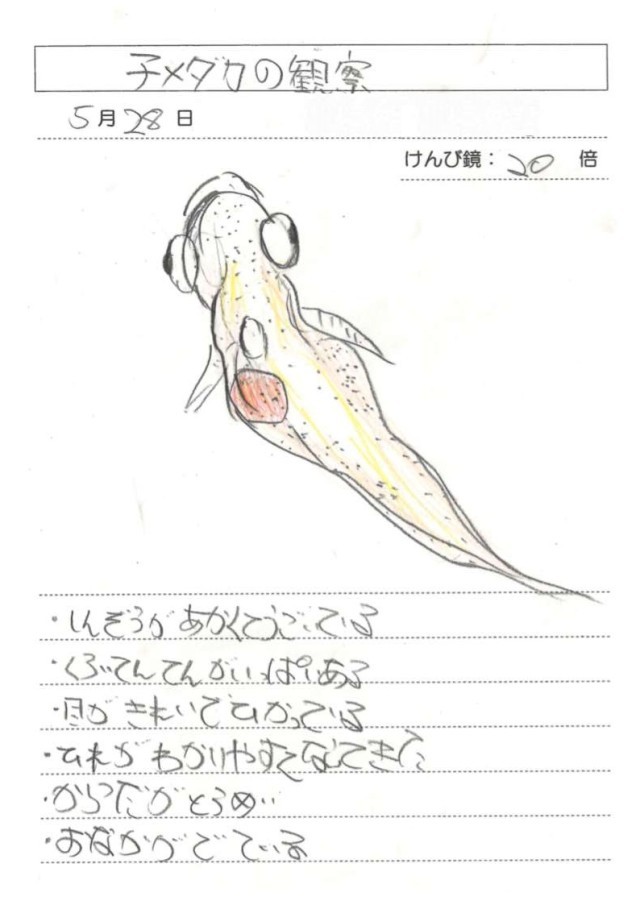 子メダカの観察
5月28日
けんび鏡：20 倍
・しんぞうがあかくてうごいている
・くろいてんてんがいっぱいある
・目がきれいでひかっている
・ひれがわかりやすくなってきた
・からだがとうめい
・おなかがでている